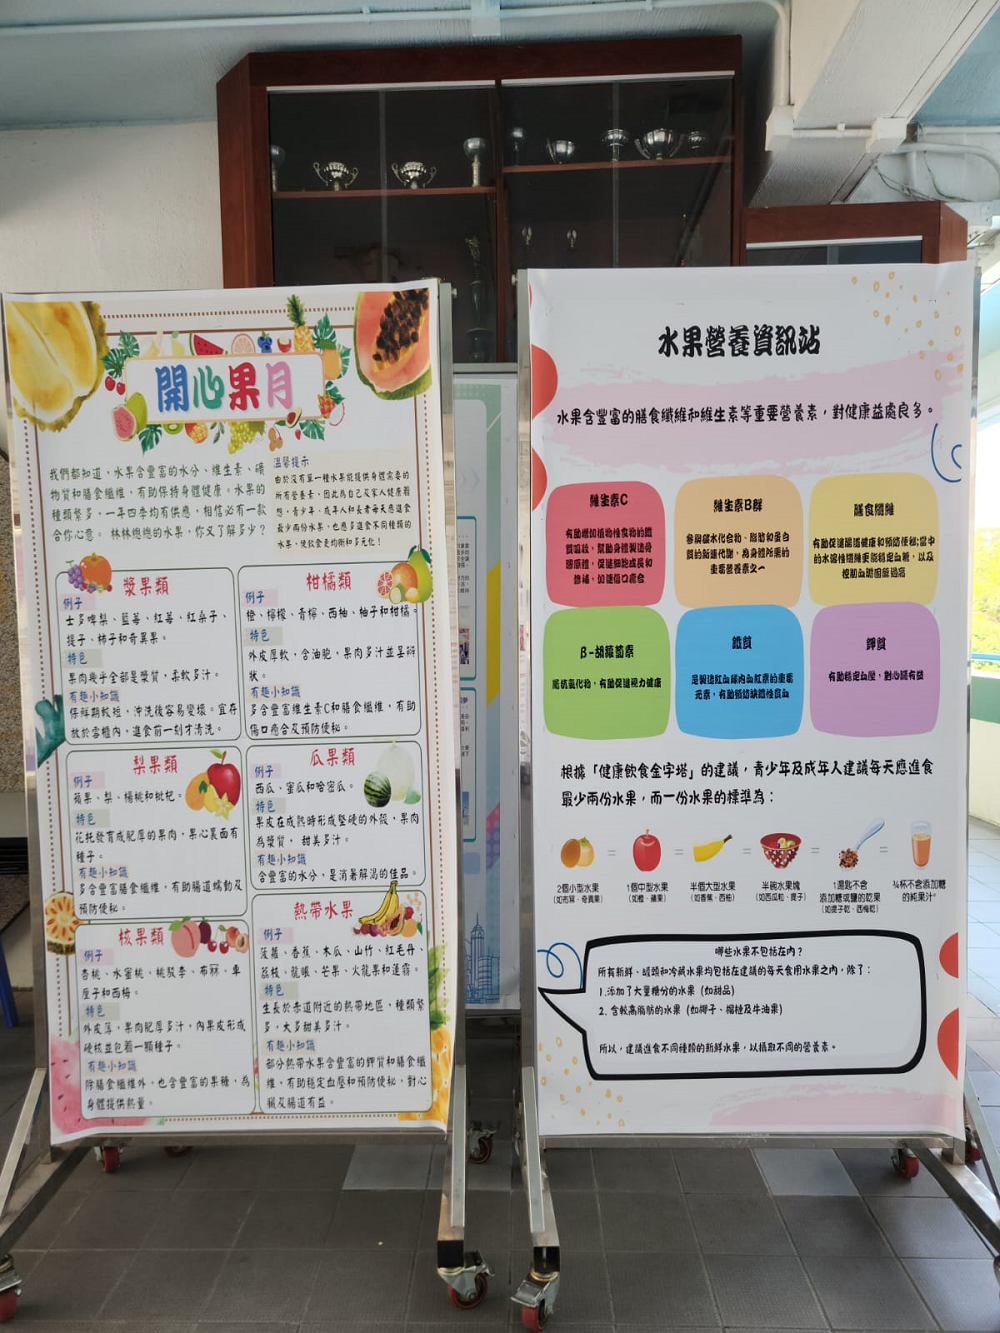 開心果月
我們都知道，水果含豐富的水分、維生素、礦
物質和膳食纖維，有助保持身體健康。水果的
種類繁多，一年四季均有供應，相信必有一款
合你心意。 林林總總的水果，你又了解多少？
溫馨提示
由於沒有單一種水果能提供身體需要的
所有營養素，因此為自己及家人健康着
想，青少年、成年人和長者每天應進食
最少兩份水果，也應多進食不同種類的
水果，使飲食更均衡和多元化！
漿果類
例子
士多啤梨、藍莓、紅莓、紅桑子、
提子、柿子和奇異果。
特色
果肉幾乎全部是漿質，柔軟多汁。
有趣小知識
保鮮期較短，沖洗後容易變壞。宜存
放於雪櫃內，進食前一刻才清洗。
柑橘類
例子
橙、檸檬、青檸、西柚、柚子和柑橘。
特色
外皮厚軟，含油胞，果肉多汁並呈瓣
狀。
有趣小知識
多含豐富維生素C和膳食纖維，有助
傷口癒合及預防便秘。
梨果類
例子
蘋果、梨、楊桃和枇杷。
特色
花托發育成肥厚的果肉，果心裏面有
種子。
有趣小知識
多含豐富膳食纖維，有助腸道蠕動及
預防便秘。
瓜果類
例子
西瓜、蜜瓜和哈密瓜。
特色
果皮在成熟時形成堅硬的外殼，果肉
為漿質， 甜美多汁。
有趣小知識
含豐富的水分，是消暑解渴的佳品。
核果類
例子
杏桃、水蜜桃、桃駁李、布冧、車
厘子和西梅。
特色
外皮薄，果肉肥厚多汁，內果皮形成
硬核並包着一顆種子。
有趣小知識
除膳食纖維外，也含豐富的果糖，為
身體提供熱量。
熱帶水果
例子
菠蘿、香蕉、木瓜、山竹、紅毛丹、
荔枝、龍眼、芒果、火龍果和蓮霧。
特色
生長於赤道附近的熱帶地區，種類繁
多，大多甜美多汁。
有趣小知識
部分熱帶水果含豐富的鉀質和膳食纖
維，有助穩定血壓和預防便秘，對心
臟及腸道有益。
水果營養資訊站
水果含豐富的膳食纖維和維生素等重要營養素，對健康益處良多。
維生素C
有助增加植物性食物的鐵
質吸收，幫助身體製造骨
膠原體，促進細胞成長和
修補，加速傷口癒合
維生素B群
參與碳水化合物、脂肪和蛋白
質的新陳代謝，為身體所需的
重要營養素之一
膳食纖維
有助促進腸道健康和預防便秘;當中
的水溶性纖維更能穩定血糖，以及
控制血膽固醇過高
β-胡蘿蔔素
屬抗氧化物，有助促進視力健康
鐵質
是製造紅血球內血紅素的重要
元素，有助預防缺鐵性貧血
鉀質
有助穩定血壓，對心臟有益
根據「健康飲食金字塔」的建議，青少年及成年人建議每天應進食
最少兩份水果，而一份水果的標準為：
2個小型水果
(如布冧、奇異果)
1個中型水果
(如橙、蘋果)
半個大型水果
(如香蕉、西柚)
半碗水果塊
(如西瓜粒、提子)
1湯匙不含
添加糖或鹽的乾果
(如提子乾、西梅乾)
¾杯不含添加糖
的純果汁*
哪些水果不包括在內？
所有新鮮、罐頭和冷藏水果均包括在建議的每天食用水果之內，除了：
1.添加了大量糖分的水果 (如甜品)
2. 含較高脂肪的水果 (如椰子、榴槤及牛油果)
所以，建議進食不同種類的新鮮水果，以攝取不同的營養素。